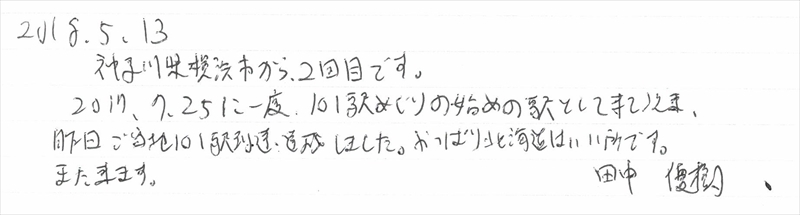 2018.5.13
神奈川県横浜市から、2回目です。
2017.7.25に一度、101駅めぐりの始めの駅として来ていま、
昨日ご当地101駅到達・達成しました。やっぱり北海道はいい所です。
また来ます。 田中 優樹